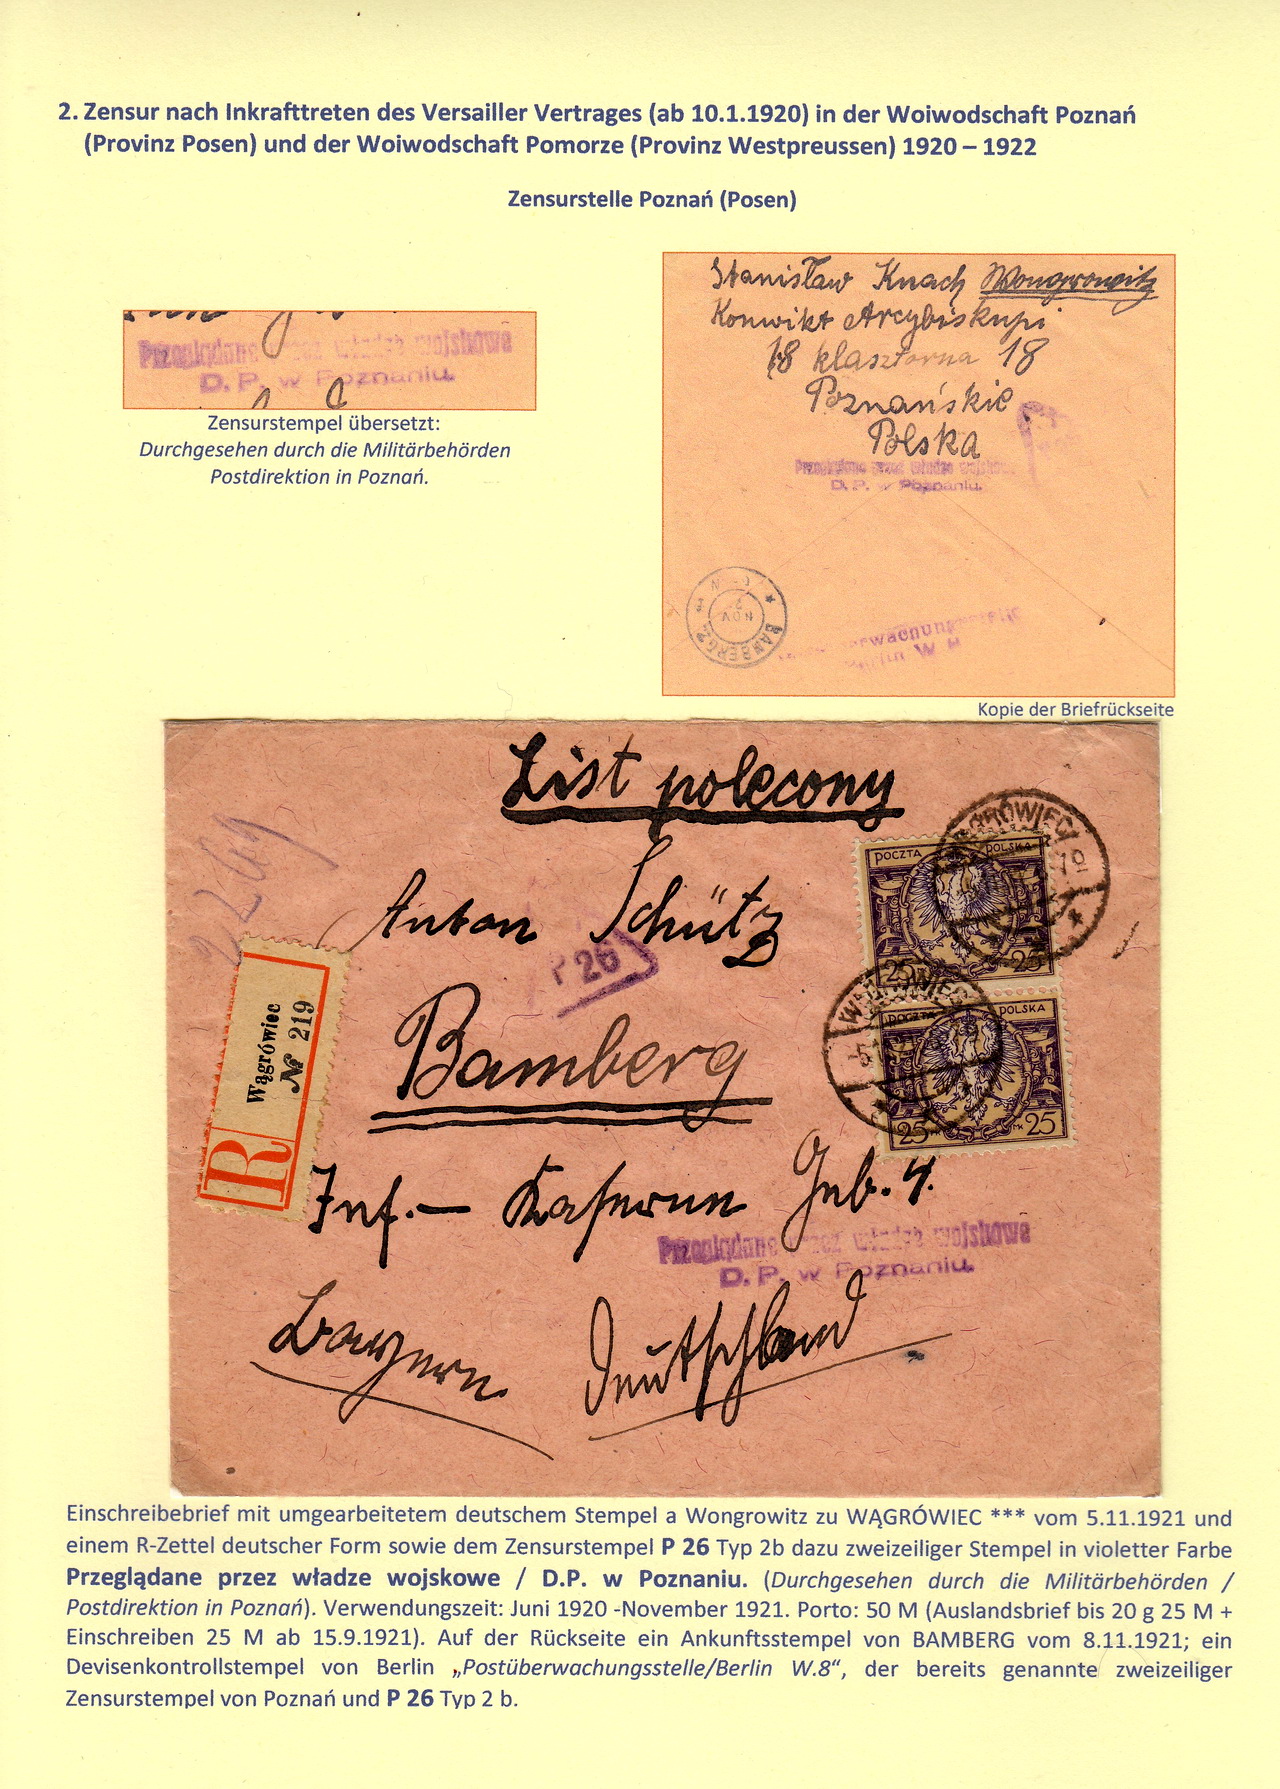 2. Zensur nach Inkrafttreten des Versailler Vertrages (ab 10.1.1920) in der Woiwodschaft Poznań
(Provinz Posen) und der Woiwodschaft Pomorze (Provinz Westpreussen) 1920 – 1922
Zensurstelle Poznań (Posen)
Przeglądane przez władze wojskowe
D. P. w Poznaniu.
Zensurstempel übersetzt:
Durchgesehen durch die Militärbehörden
Postdirektion in Poznań.
Stanisław Knach Wongrowitz
Konwikt Arcybiskupi
18 klasztorna 18
Poznańskie
Polska
Przeglądane przez władze wojskowe
D. P. w Poznaniu.
BAMBERG 2
NOV
Berlin W. 8
Kopie der Briefrückseite
List polecony
Anton Schütz
P 26
Bamberg
Inf. – Kaserne Geb. 4.
Bayern Deutschland
Wągrówiec
№ 219
R
WĄGRÓWIEC
POCZTA POLSKA
25 25
WĄGRÓWIEC
POCZTA POLSKA
25 MK 25
Przeglądane przez władze wojskowe
D. P. w Poznaniu.
Einschreibebrief mit umgearbeitetem deutschem Stempel a Wongrowitz zu WĄGRÓWIEC *** vom 5.11.1921 und
einem R-Zettel deutscher Form sowie dem Zensurstempel P 26 Typ 2b dazu zweizeiliger Stempel in violetter Farbe
Przeglądane przez władze wojskowe / D.P. w Poznaniu. (Durchgesehen durch die Militärbehörden /
Postdirektion in Poznań). Verwendungszeit: Juni 1920 -November 1921. Porto: 50 M (Auslandsbrief bis 20 g 25 M +
Einschreiben 25 M ab 15.9.1921). Auf der Rückseite ein Ankunftsstempel von BAMBERG vom 8.11.1921; ein
Devisenkontrollstempel von Berlin „Postüberwachungsstelle/Berlin W.8“, der bereits genannte zweizeiliger
Zensurstempel von Poznań und P 26 Typ 2 b.